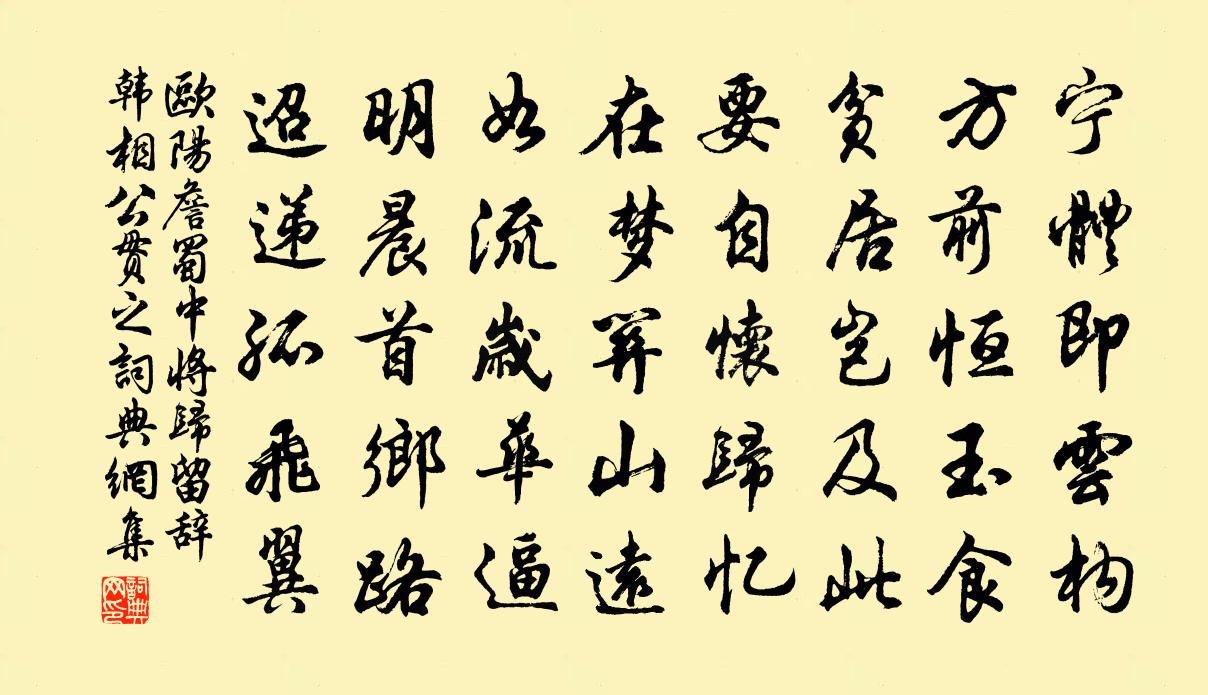 宁體即雲构
方前恒玉食
貧居岂及此
要自懷歸忆
在梦関山遠
如流歲華逼
明晨首鄉路
迢递孤飛翼
歐陽詹蜀中将歸留辞
韩相公貫之詞典網集
詞典网印